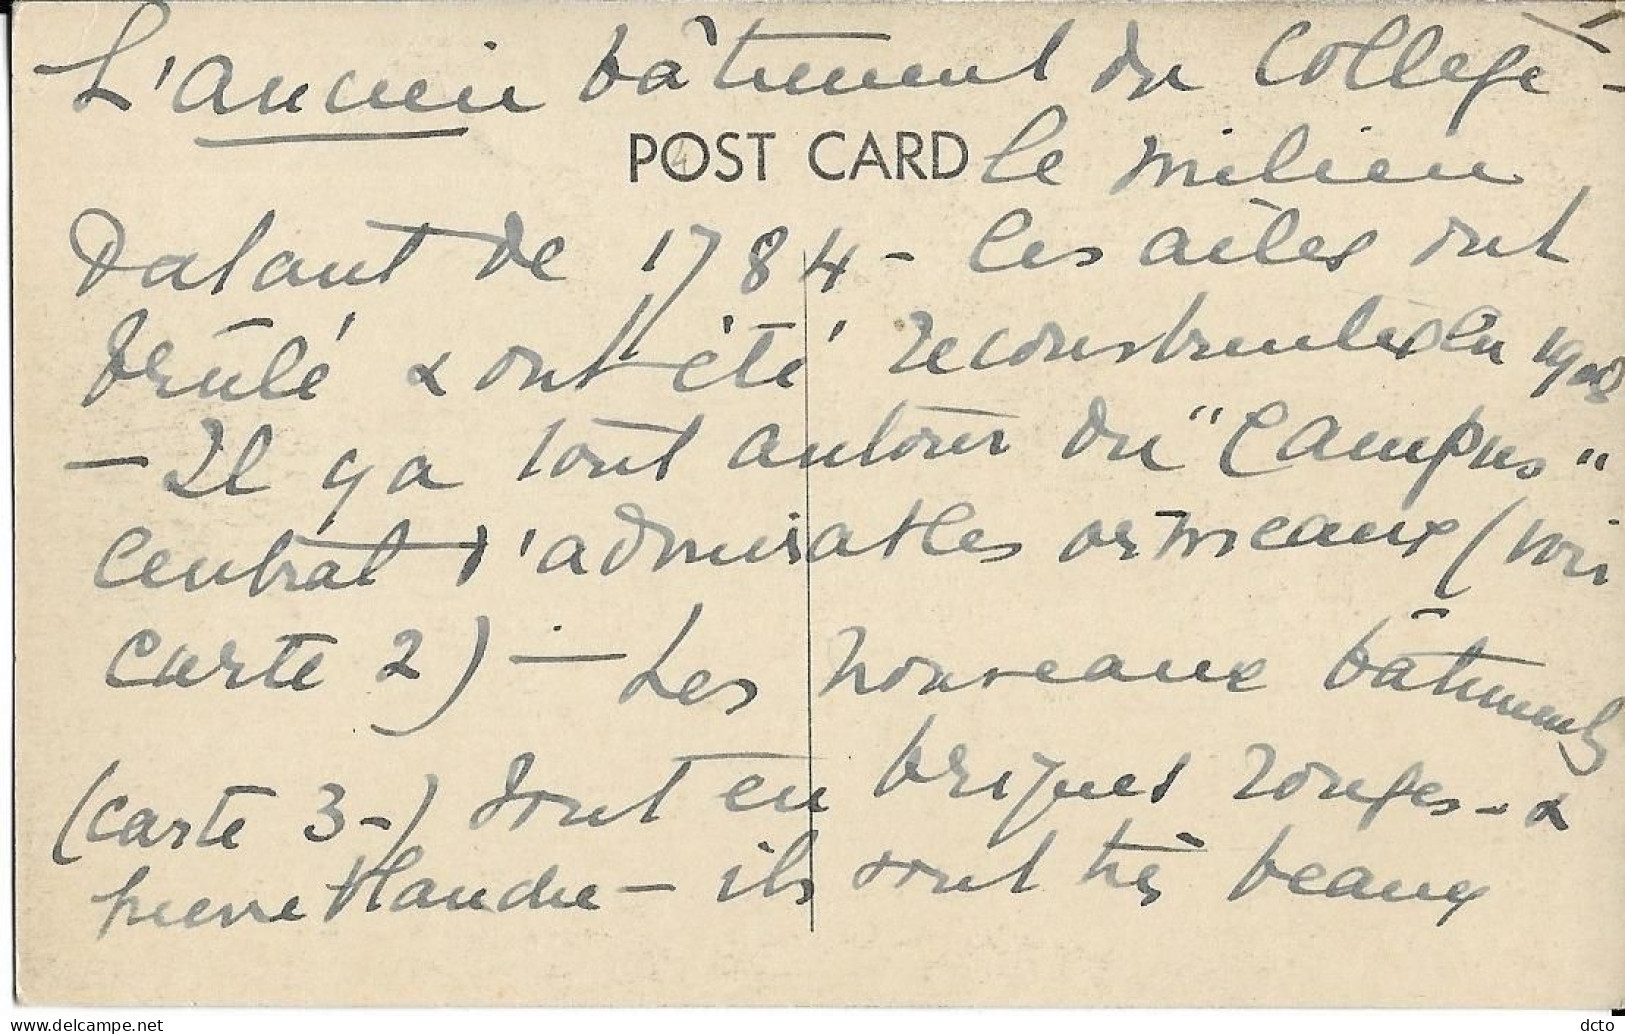 L'ancien bâtiment du College -
POST CARD le milieu
datant de 1784 - les ailes ont
brûlé & ont été reconstruites en 1908
- Il y a tout autour du "Campus"
central d'admirables ormeaux (voir
carte 2) - Les nouveaux bâtiments
(carte 3-) sont en briques rouges - &
pierre blanche - ils sont très beaux
delcampe.net
dcto